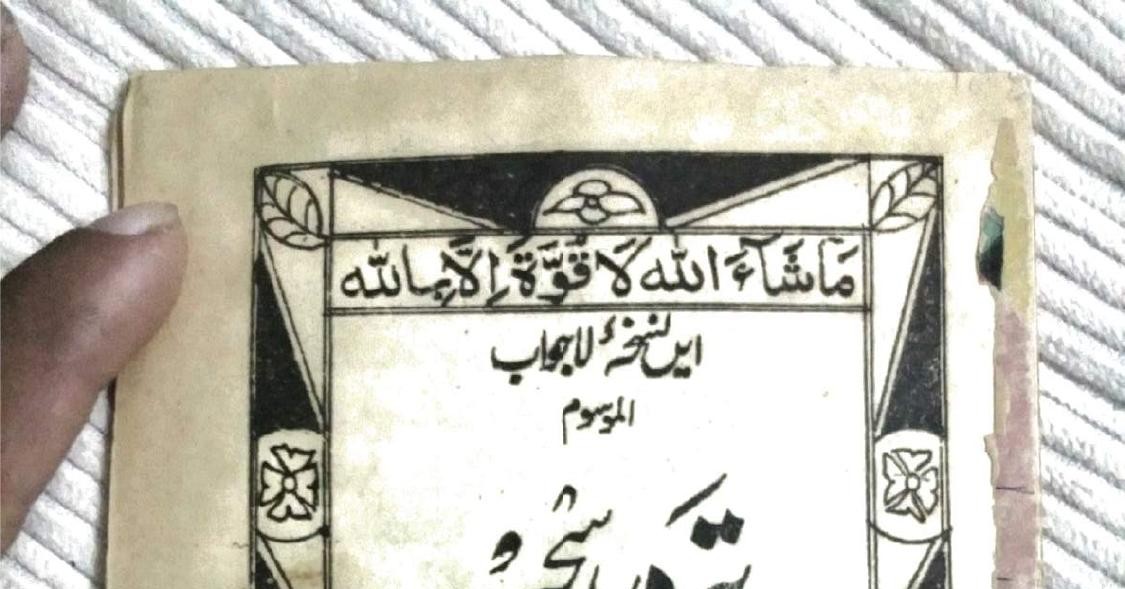 مَاشَآءَ اللّٰه لَا قُوَّةَ اِلَّا بِاللّٰه
ایں نسخۂ لاجواب
الموسوم